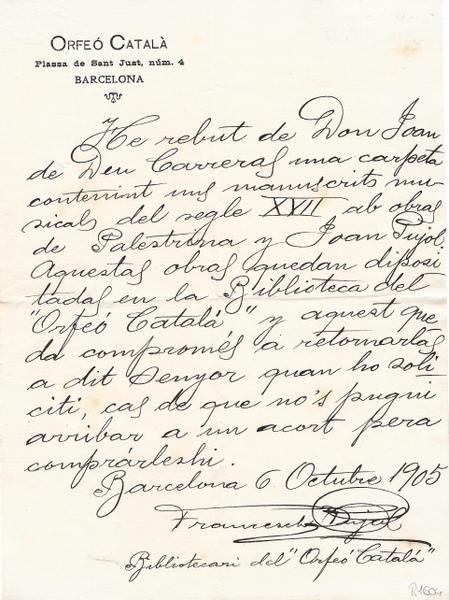 ORFEÓ CATALÀ
Plassa de Sant Just, núm. 4
BARCELONA
He rebut de Don Joan
de Deu Carreras una carpeta
contenint uns manuscrits mu-
sicals del segle XVII ab obras
de Palestrina y Joan Pujol.
Aquestas obras quedan diposi
tadas en la Biblioteca del
"Orfeó Catalá" y aquest que-
da compromés á retornarlas
a dit Senyor quan ho soli
citi, cas de que no's pugui
arribar a un acort pera
comprárleshi.
Barcelona 6 Octubre 1905
Francesch Pujol
Bibliotecari del "Orfeó Catalá"
R.1604